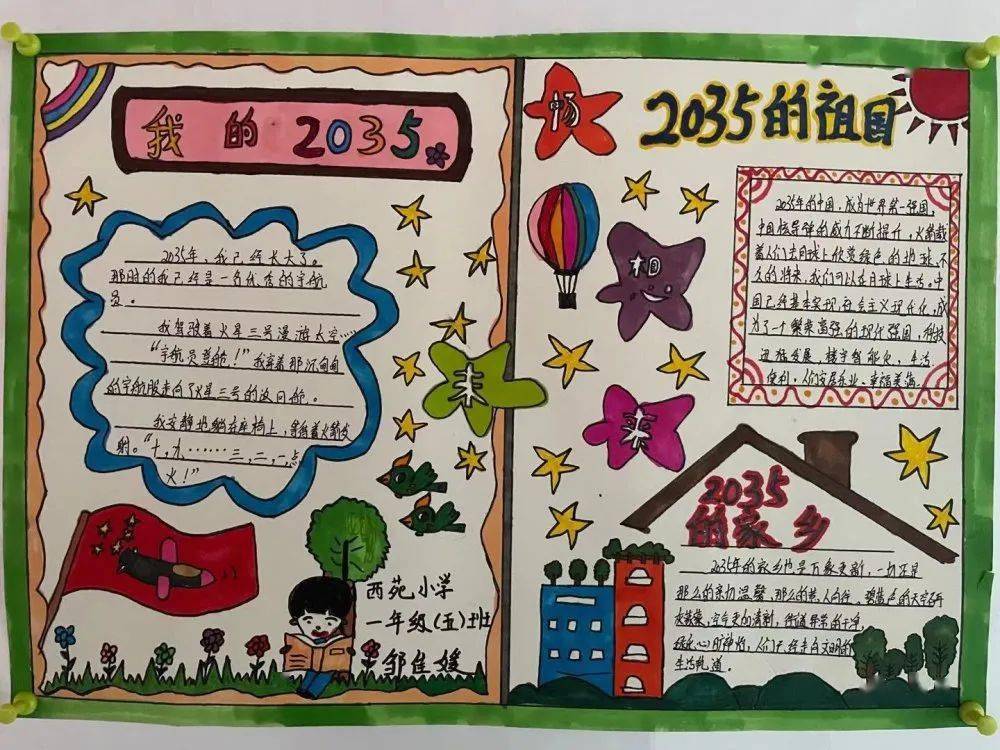 我的2035
2035年，我已经长大了。
那时的我已经是一名优秀的宇航
员。
我驾驶着火星三号漫游太空……
“宇航员登舱！”我穿着那沉甸甸
的宇航服走向了火星三号的返回舱。
我安静地躺在座椅上，等待着火箭发
射。“十，九……三，二，一点
火！”
西苑小学
一年级(五)班
邹佳媛
畅
想
未
来
2035的祖国
2035年的中国，成为世界第一强国，
中国核导弹的威力不断提升，火箭载
着人们去月球上欣赏绿色的地球，不
久的将来，我们可以在月球上生活。中
国已经基本实现社会主义现代化，成
为了一个繁荣富强的现代强国，科技
迅猛发展、楼宇智能化、生活
便利，人们安居乐业、幸福美满。
2035
的家乡
2035年的家乡也是万象更新，一切还是
那么的亲切温馨，那么的惹人向往。碧蓝色的天空
空气更加清新，街道异常的干净，
人们已经走向文明的
生活轨道。